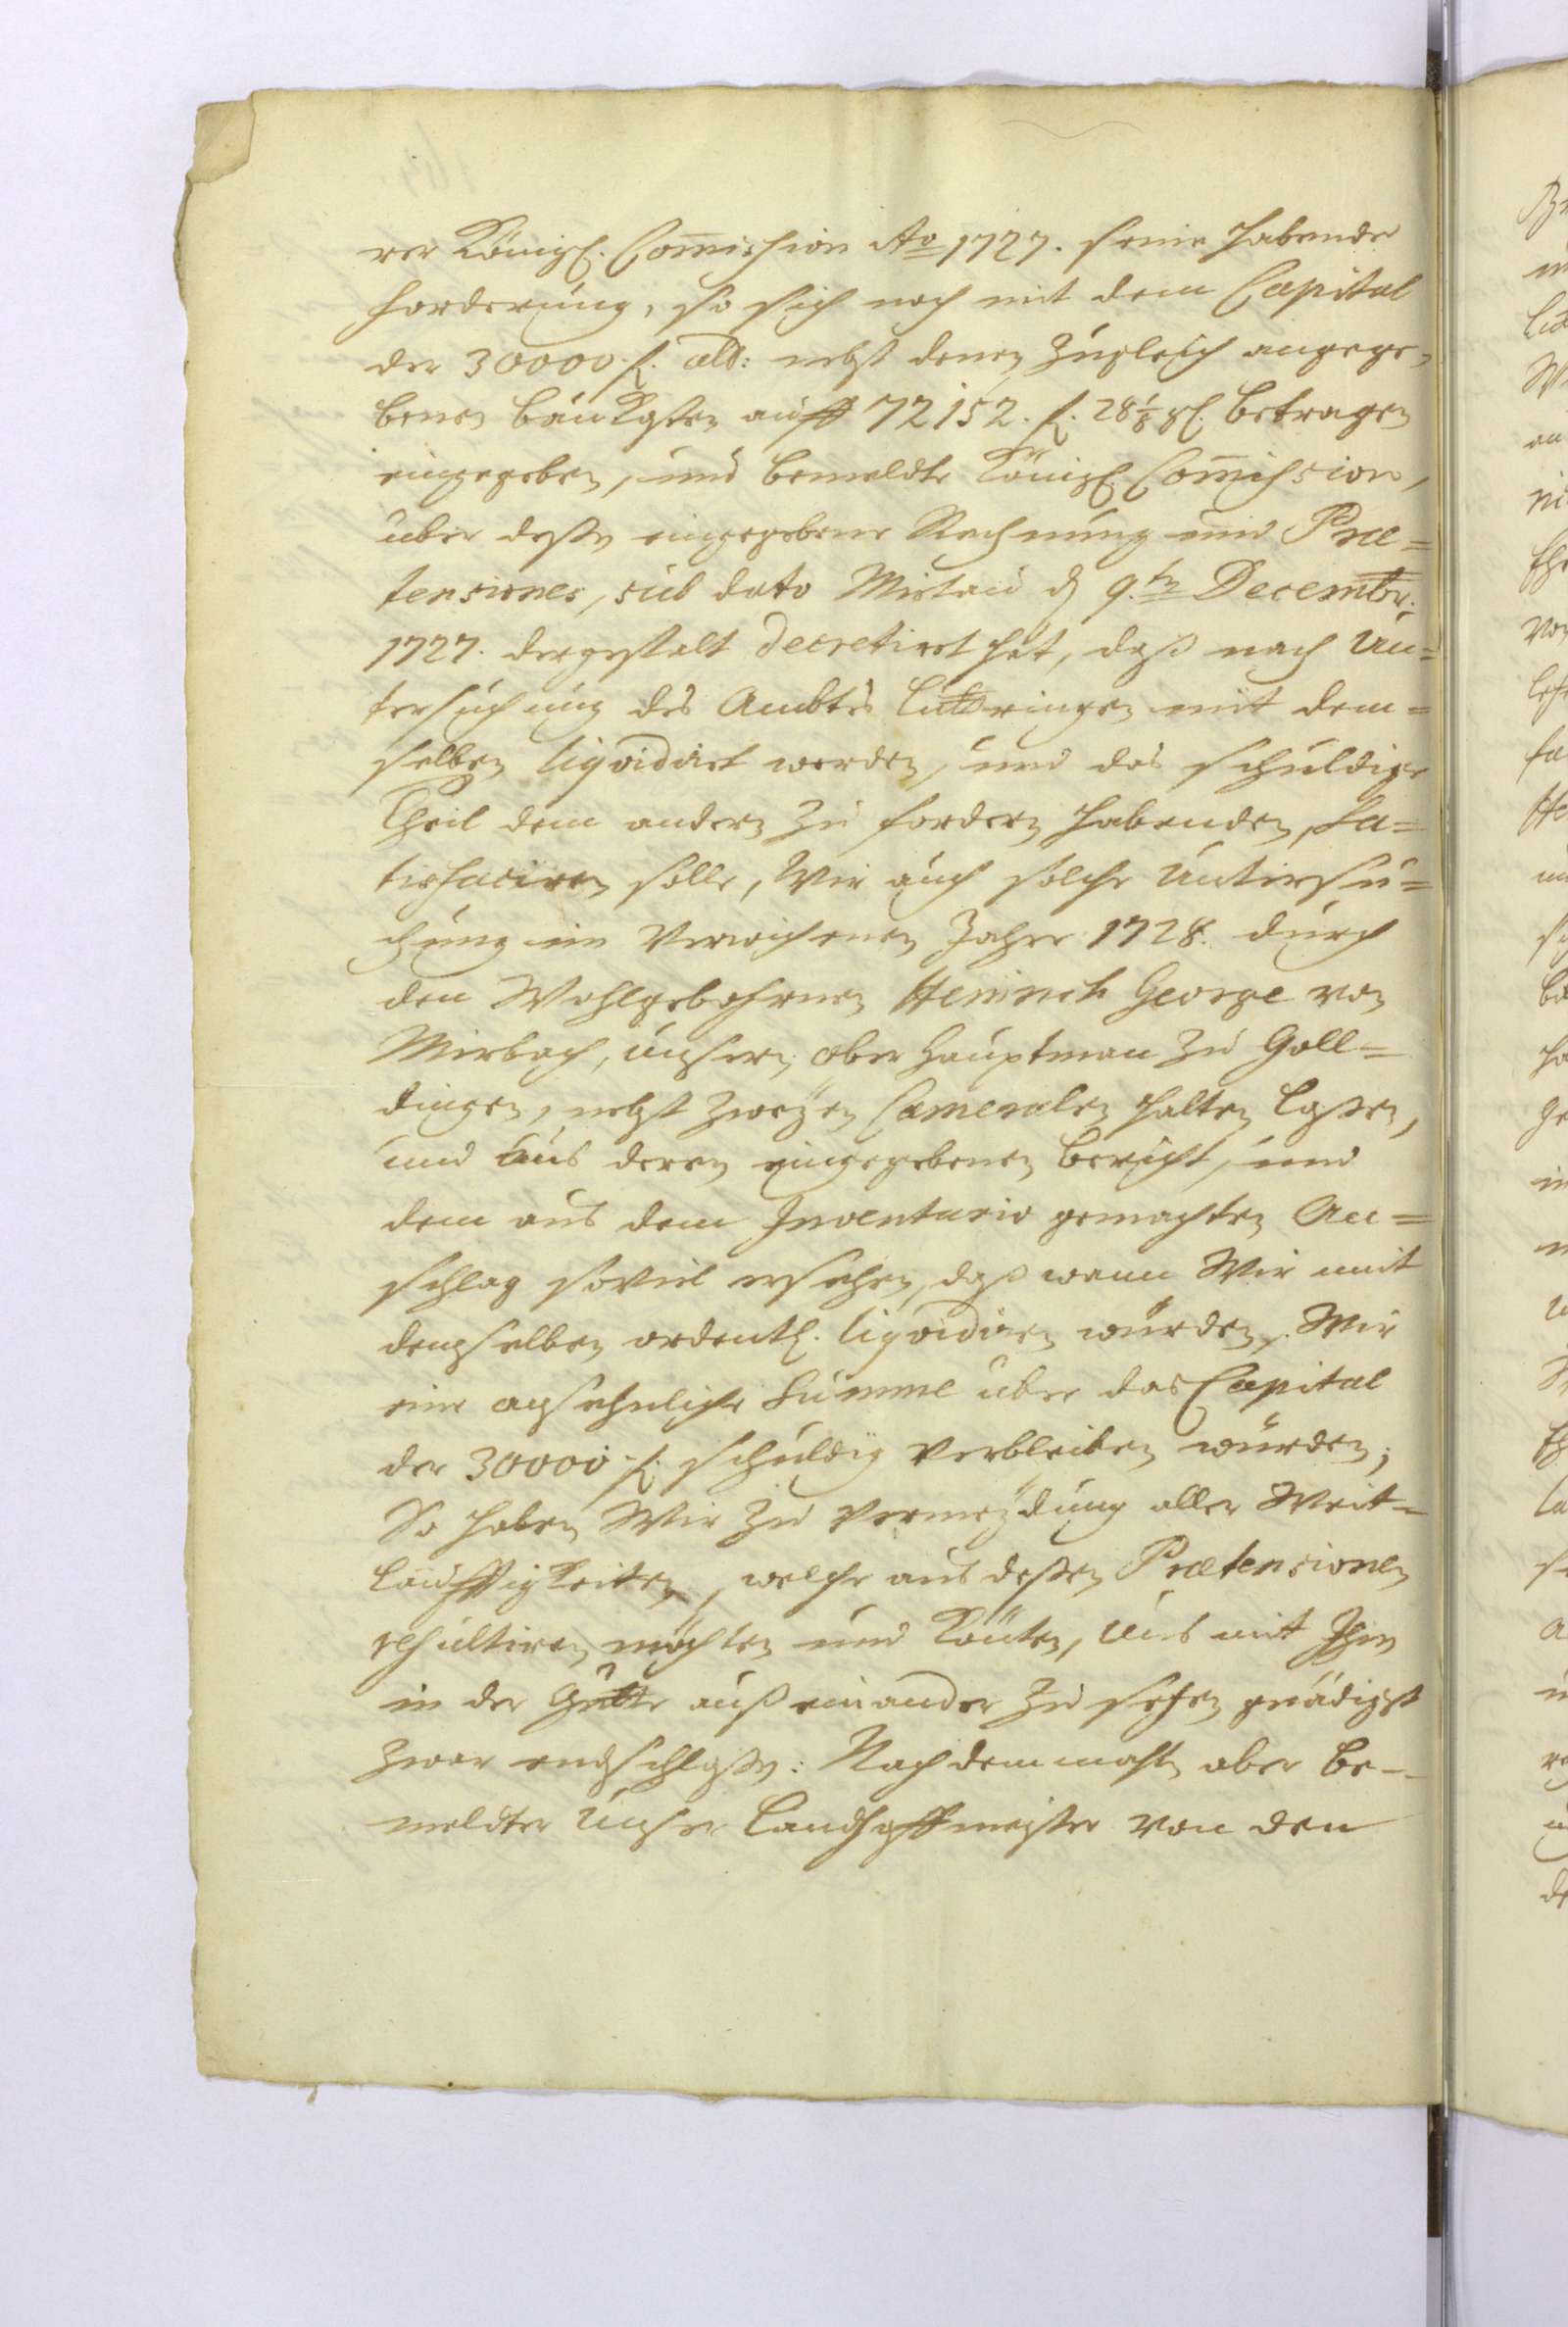 rer Königl. Com̄ission Ao 1727. seine habende
forderung, so sich noch mit dem Capital
der 30000 fl. alb: nebst denen zugleich angege-
benen baukosten auff 72152. fl. 28 1/8 gl. betragen
eingegeben, und bemeldte Königl. Com̄ission,
über deßen eingegebene Rechnung und Præ=
tensiones, sub dato Mitau d 9.ten Decembr:
1727. dergestalt decretiret hat, daß nach Un=
tersuchung des Ambtes Luttringen mit dem=
selben liqvidiret werden, und das schuldige
Theil dem andern zu fordern habenden, Sa=
tisfaciren solle, Wir auch solche Untersu=
chung im verwichenen Jahre 1728. durch
den Wohlgebohrnen Heinrich George von
Mirbach, unsern ober Hauptman zu Gol=
dingen, nebst zweÿen Cameralen halten laßen,
und aus deren eingegebenen bericht, und
dem aus dem Inventario gemachten An=
schlag soviel ersehen, daß wann Wir mit
demselben ordentl. liqvidiren würden, Wir
eine ansehnliche Summe über das Capital
der 30000 fl. schuldig verbleiben würden;
So haben Wir zu vermeÿdung aller Weit-
läufftigkeiten, welche aus deßen Prætensionen
resultiren möchten und könten, Uns mit Ihm
in der Gütte auß einander zu setzen gnädigst
zwar entschloßen: Nachdemmahl aber be-
meldter Unser Landhoffmeister von den
Br